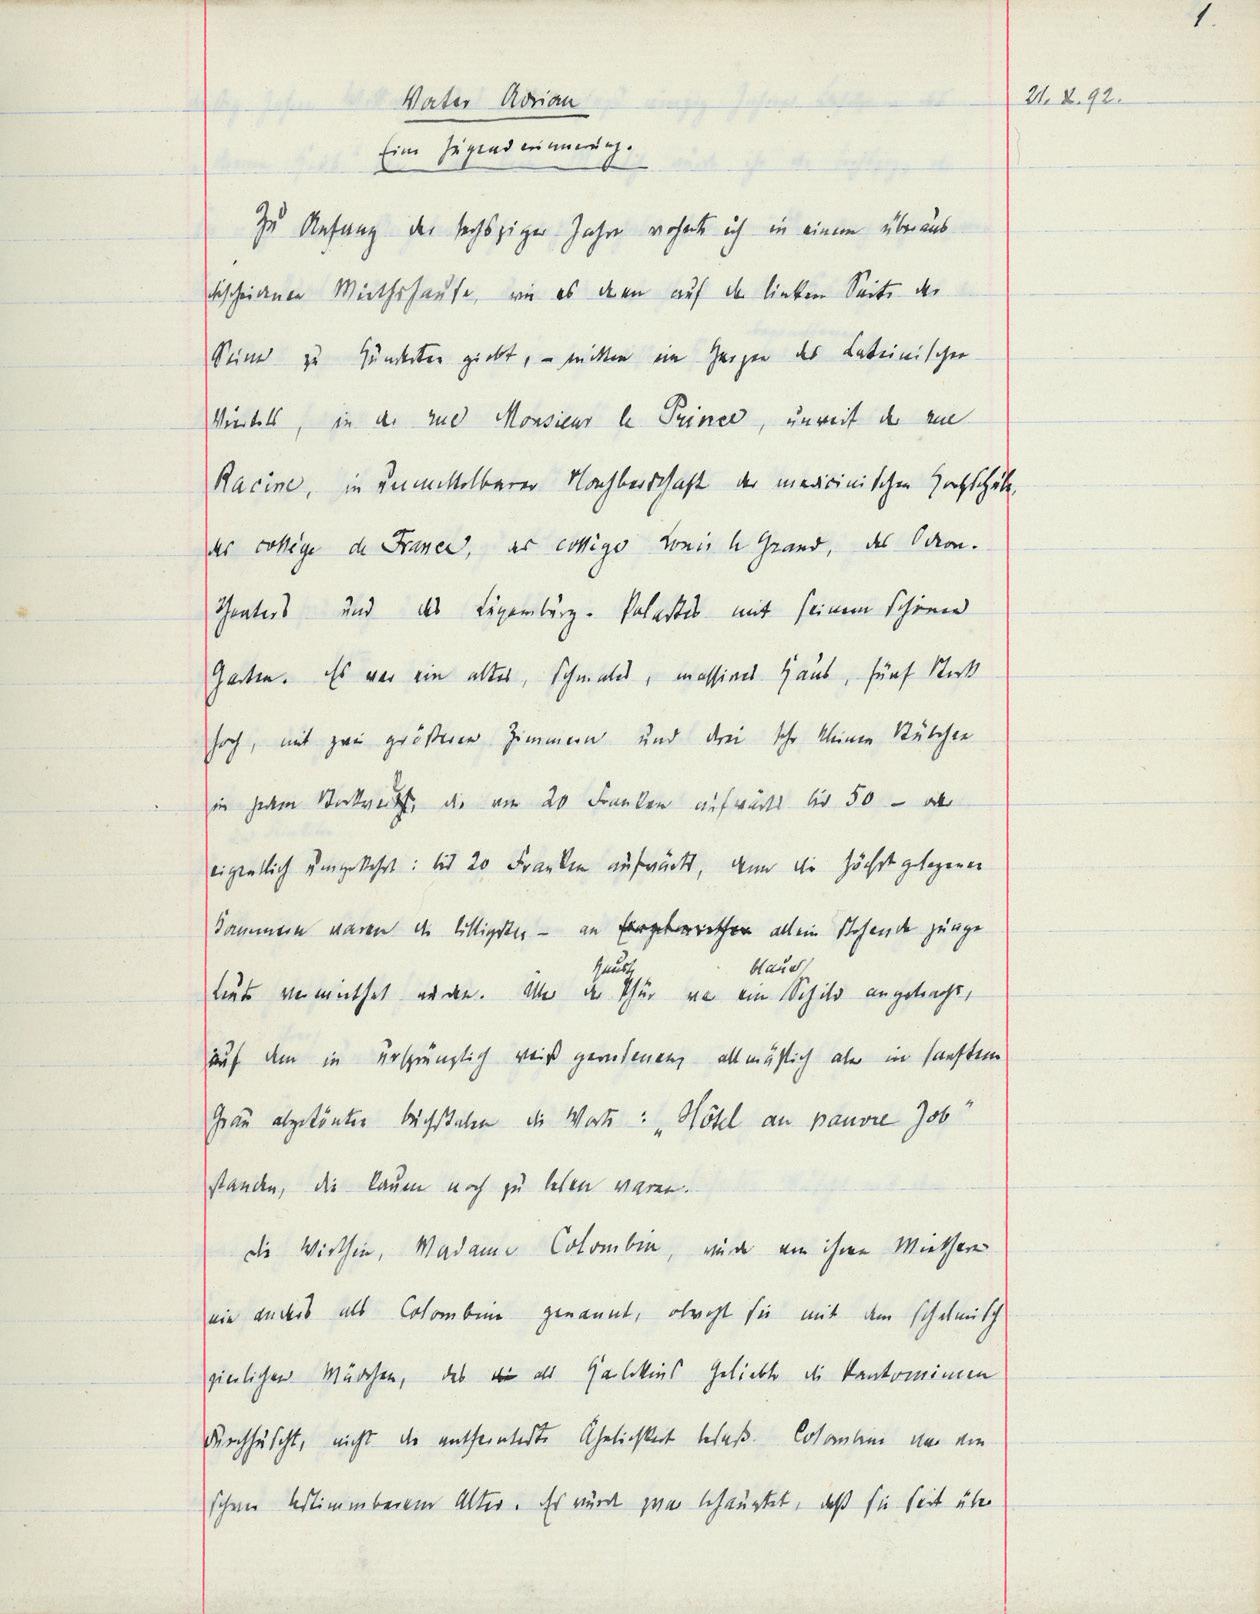 1.
Vater Adrian
21. X. 92.
Eine Jugenderinnerung.
Zu Anfang der sechsziger Jahre wohnte ich in einem überaus
bescheidenen Miethshause, wie es deren auf der linken Seite der
Seine zu Hunderten giebt, – mitten im Herzen des Lateinischen
Viertels, in der rue Monsieur le Prince, unweit der rue
Racine, in unmittelbarer Nachbarschaft der medicinischen Hochschule,
des collège de France, des collège Louis le Grand, des Odeon-
Theaters und des Luxemburg-Palastes mit seinem schönen
Garten. Es war ein altes, schmales, massives Haus, fünf Stock
hoch, mit zwei größeren Zimmern und drei sehr kleinen Stübchen
in jedem Stockwerk, die von 20 Franken aufwärts bis 50 – oder
eigentlich umgekehrt: bis 20 Franken aufwärts, denn die höchst gelegenen
Kammern waren die billigsten – an allein stehende junge
Haus blaues
Leute vermiethet wurden. Über der Thür war ein Schild angebracht,
auf dem in ursprünglich weiß gewesenen, allmählich aber in sanftem
Grau abgetönten Buchstaben die Worte: „Hôtel au pauvre Job"
standen, die kaum noch zu lesen waren.
Die Wirthin, Madame Colombin, wurde von ihren Miethern
nie anders als Colombine genannt, obwohl sie mit dem schelmisch
zierlichen Mädchen, das als Harlekins Geliebte die Pantomimen
durchhuscht, nicht die entfernteste Ähnlichkeit besaß. Colombine war von
schwer bestimmbarem Alter. Es wurde zwar behauptet, daß sie seit über